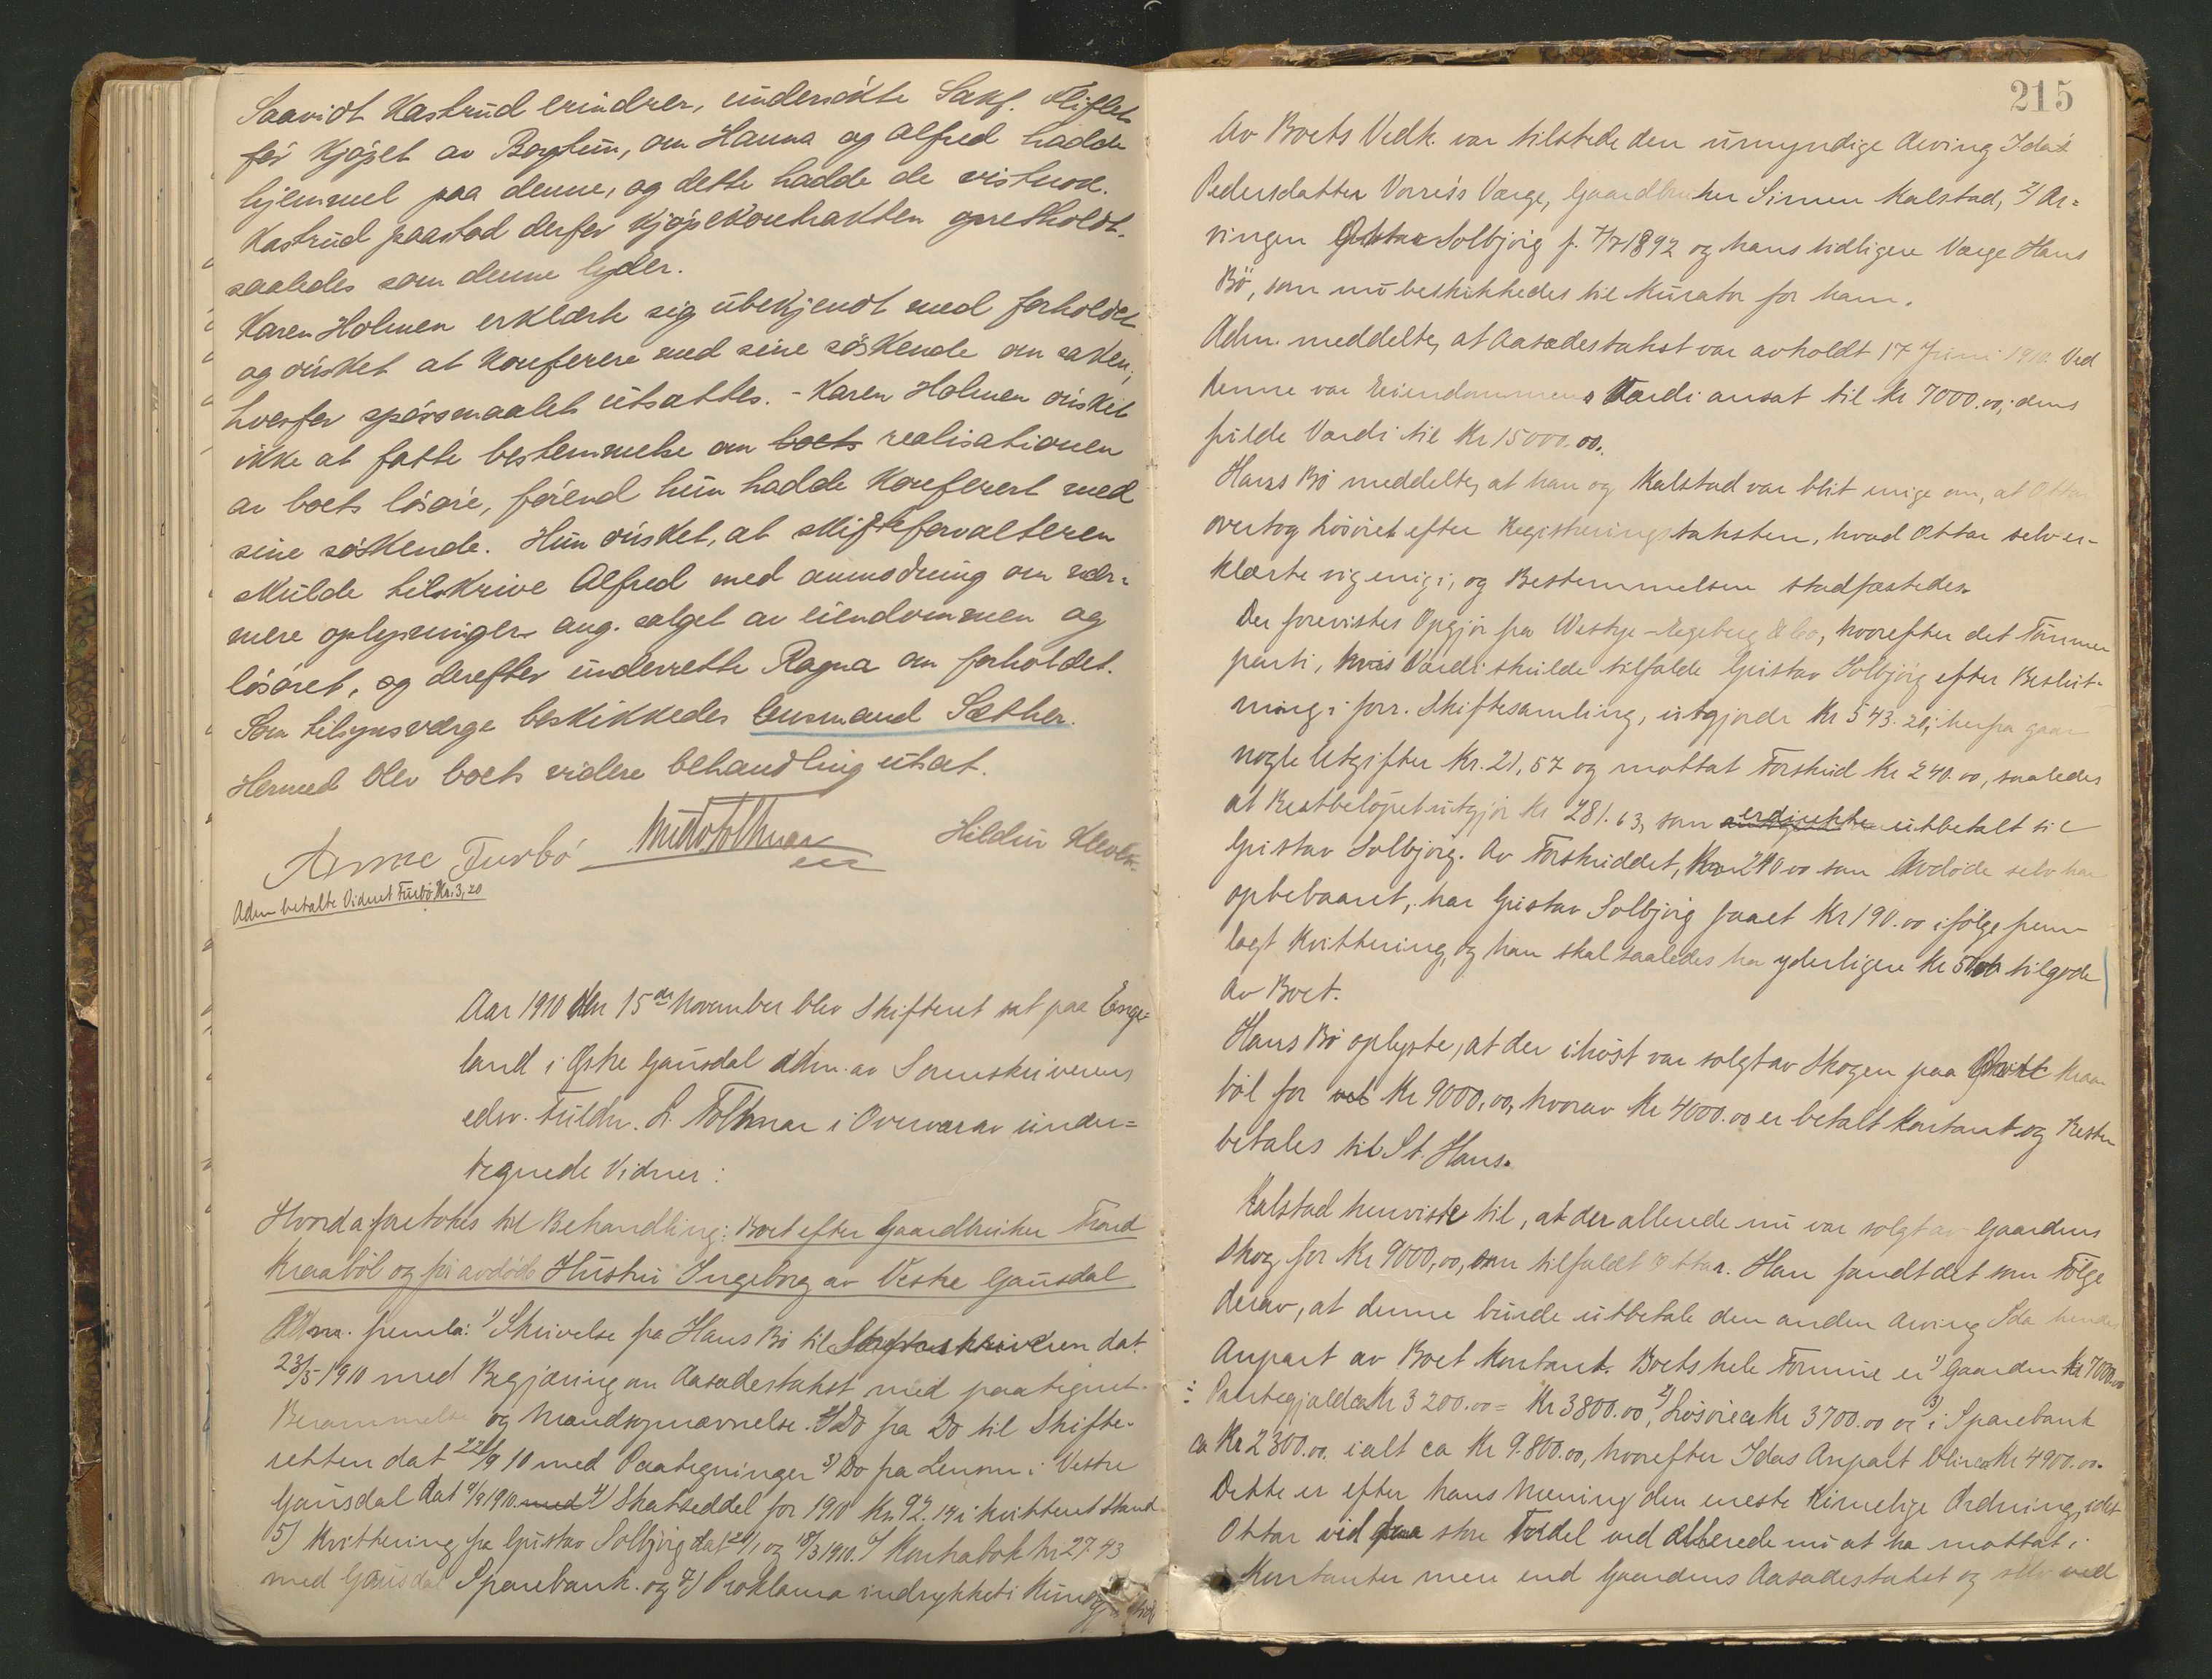 Saavidt Kastrud erindrer, undersökte Sakf. Fliflet
før kjöpet av Borgtun, om Hanna og Alfred hadde
hjemmel paa denne, og dette hadde de vistnok.
Kastrud paastod derfor kjöpekontrakten opretholdt
saaledes som denne lyder.
Karen Holmen erklærte sig übekjendt med forholdet
og önsket at konferere med sine söskende om saken,
hvorfor spörsmaalet utsattes. - Karen Holmen önsket
ikke at fatte bestemmelse om boets realisationen
av boets lösöre, förend hun hadde konferert med
sine söskende. Hun önsket, at skifteforvalteren
skulde tilskrive Alfred med anmodning om nær-
mere oplysninger ang. salget av eiendommen og
lösöret, og derefter underrette Ragna om forholdet.
Som tilsynsværge beskikkedes lensmand Sæther.
Hermed blev boets videre behandling utsat.
Arne Furbö Hildur
Adm betalte Vidnet Furbö Kr. 3,20
Aar 1910 den 15de November blev Skifteret sat paa Enge-
land i Østre Gausdal adm. av Sorenskriverens
edsv. Fuldm. L. Toltnæs i Overvær av under-
tegnede Vidner:
Hvorda foretokes til Behandling: Boet efter Gaardbruker Trond
Kraaböl og før avdöde Hustru Ingeborg av Vestre Gausdal
Adm. fremla: 1) Skrivelse fra Hans Bö til Sorenskriveren dat.
23/5 1910 med Begjæring om Aasædestakst med paategnet
Berammelse og Mændsopnævnelse. 2) Do fra Do til Skifte-
retten dat 22/9 10 med Paategninger 3) Do fra Lensm i Vestre
Gausdal dat 9/9 1910 med 4) Skatseddel for 1910 Kr. 92. i kvitteret Stand
5) Kvittering fra Gustav Solbjörg dat 24/1 og 18/3 1910. 6) Kontrabok Nr 2743
med Gausdal Sparebank. og 7) Proklama indrykket i
215
Av Boets Vedk. var tilstede den umyndige Arving Ida
Pedersdatter Vorres's Værge, Gaardbruker Simen Kalstad, 2) Ar-
vingen Ottar Solbjörg f. 7/7 1892 og hans tidligere Værge Hans
Bö, som nu beskikkedes til Kurator for ham.
Adm. meddelte, at Aasædestakst var avholdt 17 Juni 1910. Ved
denne var Eiendommens Værdi ansat til Kr 7000.00; dens
fulde Værdi til Kr 15000.00.
Hans Bö meddelte, at han og Kalstad var blit enige om, at Ottar
overtog Lösöret efter Registreringstaksten, hvad Ottar selv er-
klærte sig enig i, og Bestemmelsen stadfæstedes.
Der forevistes Opgjör fra Westye-Egeberg & Co, hvorefter det Tömmer
parti, hvis Værdi skulde tilfalde Gustav Solbjörg efter Beslut-
ning i forr. Skiftesamling, utgjorde Kr 543.20; herfra gaar
nogle Utgifter Kr. 21,57 og mottat Forskud Kr 240.00, saaledes
at Restbelöpet utgjör Kr 281.63, som utbetalt til
Gustav Solbjörg. Av Forskuddet, Kr 240.00 som Avdöde selv har
opbebaaret, har Gustav Solbjörg faaet Kr 190.00 ifölge frem-
lagt Kvittering, og han skal saaledes ha yderligere Kr 50.00 tilgode
av Boet.
Hans Bö oplyste, at der ihöst var solgt av Skogen paa Kraa
böl for Kr 9000,00, hvorav Kr 4000.00 er betalt kontant og Resten
betales til St. Hans.
Kalstad henviste til, at der allerede nu var solgt av Gaardens
Skog for Kr 9000,00, som tilfaldt Ottar. Han fandt det som Fölge
derav, at denne burde utbetale den anden Arving Ida hendes
Anpart av Boet kontant. Boets hele Formue er 1) Gaarden Kr 7000.00
÷ Pantegjæld ca Kr 3200.00 = Kr 3800.00, 2) Lösöre ca Kr 3700.00 og 3) i Sparebank
ca Kr 2300.00. ialt ca Kr 9.800.00, hvorefter Idas Anpart blir ca Kr 4900.00.
Dette er efter hans Mening den eneste rimelige Ordning, idet
Ottar vid store Fordel ved allerede nu at ha mottat i
Kontanter mere end Gaardens Aasædestakst og selv ved